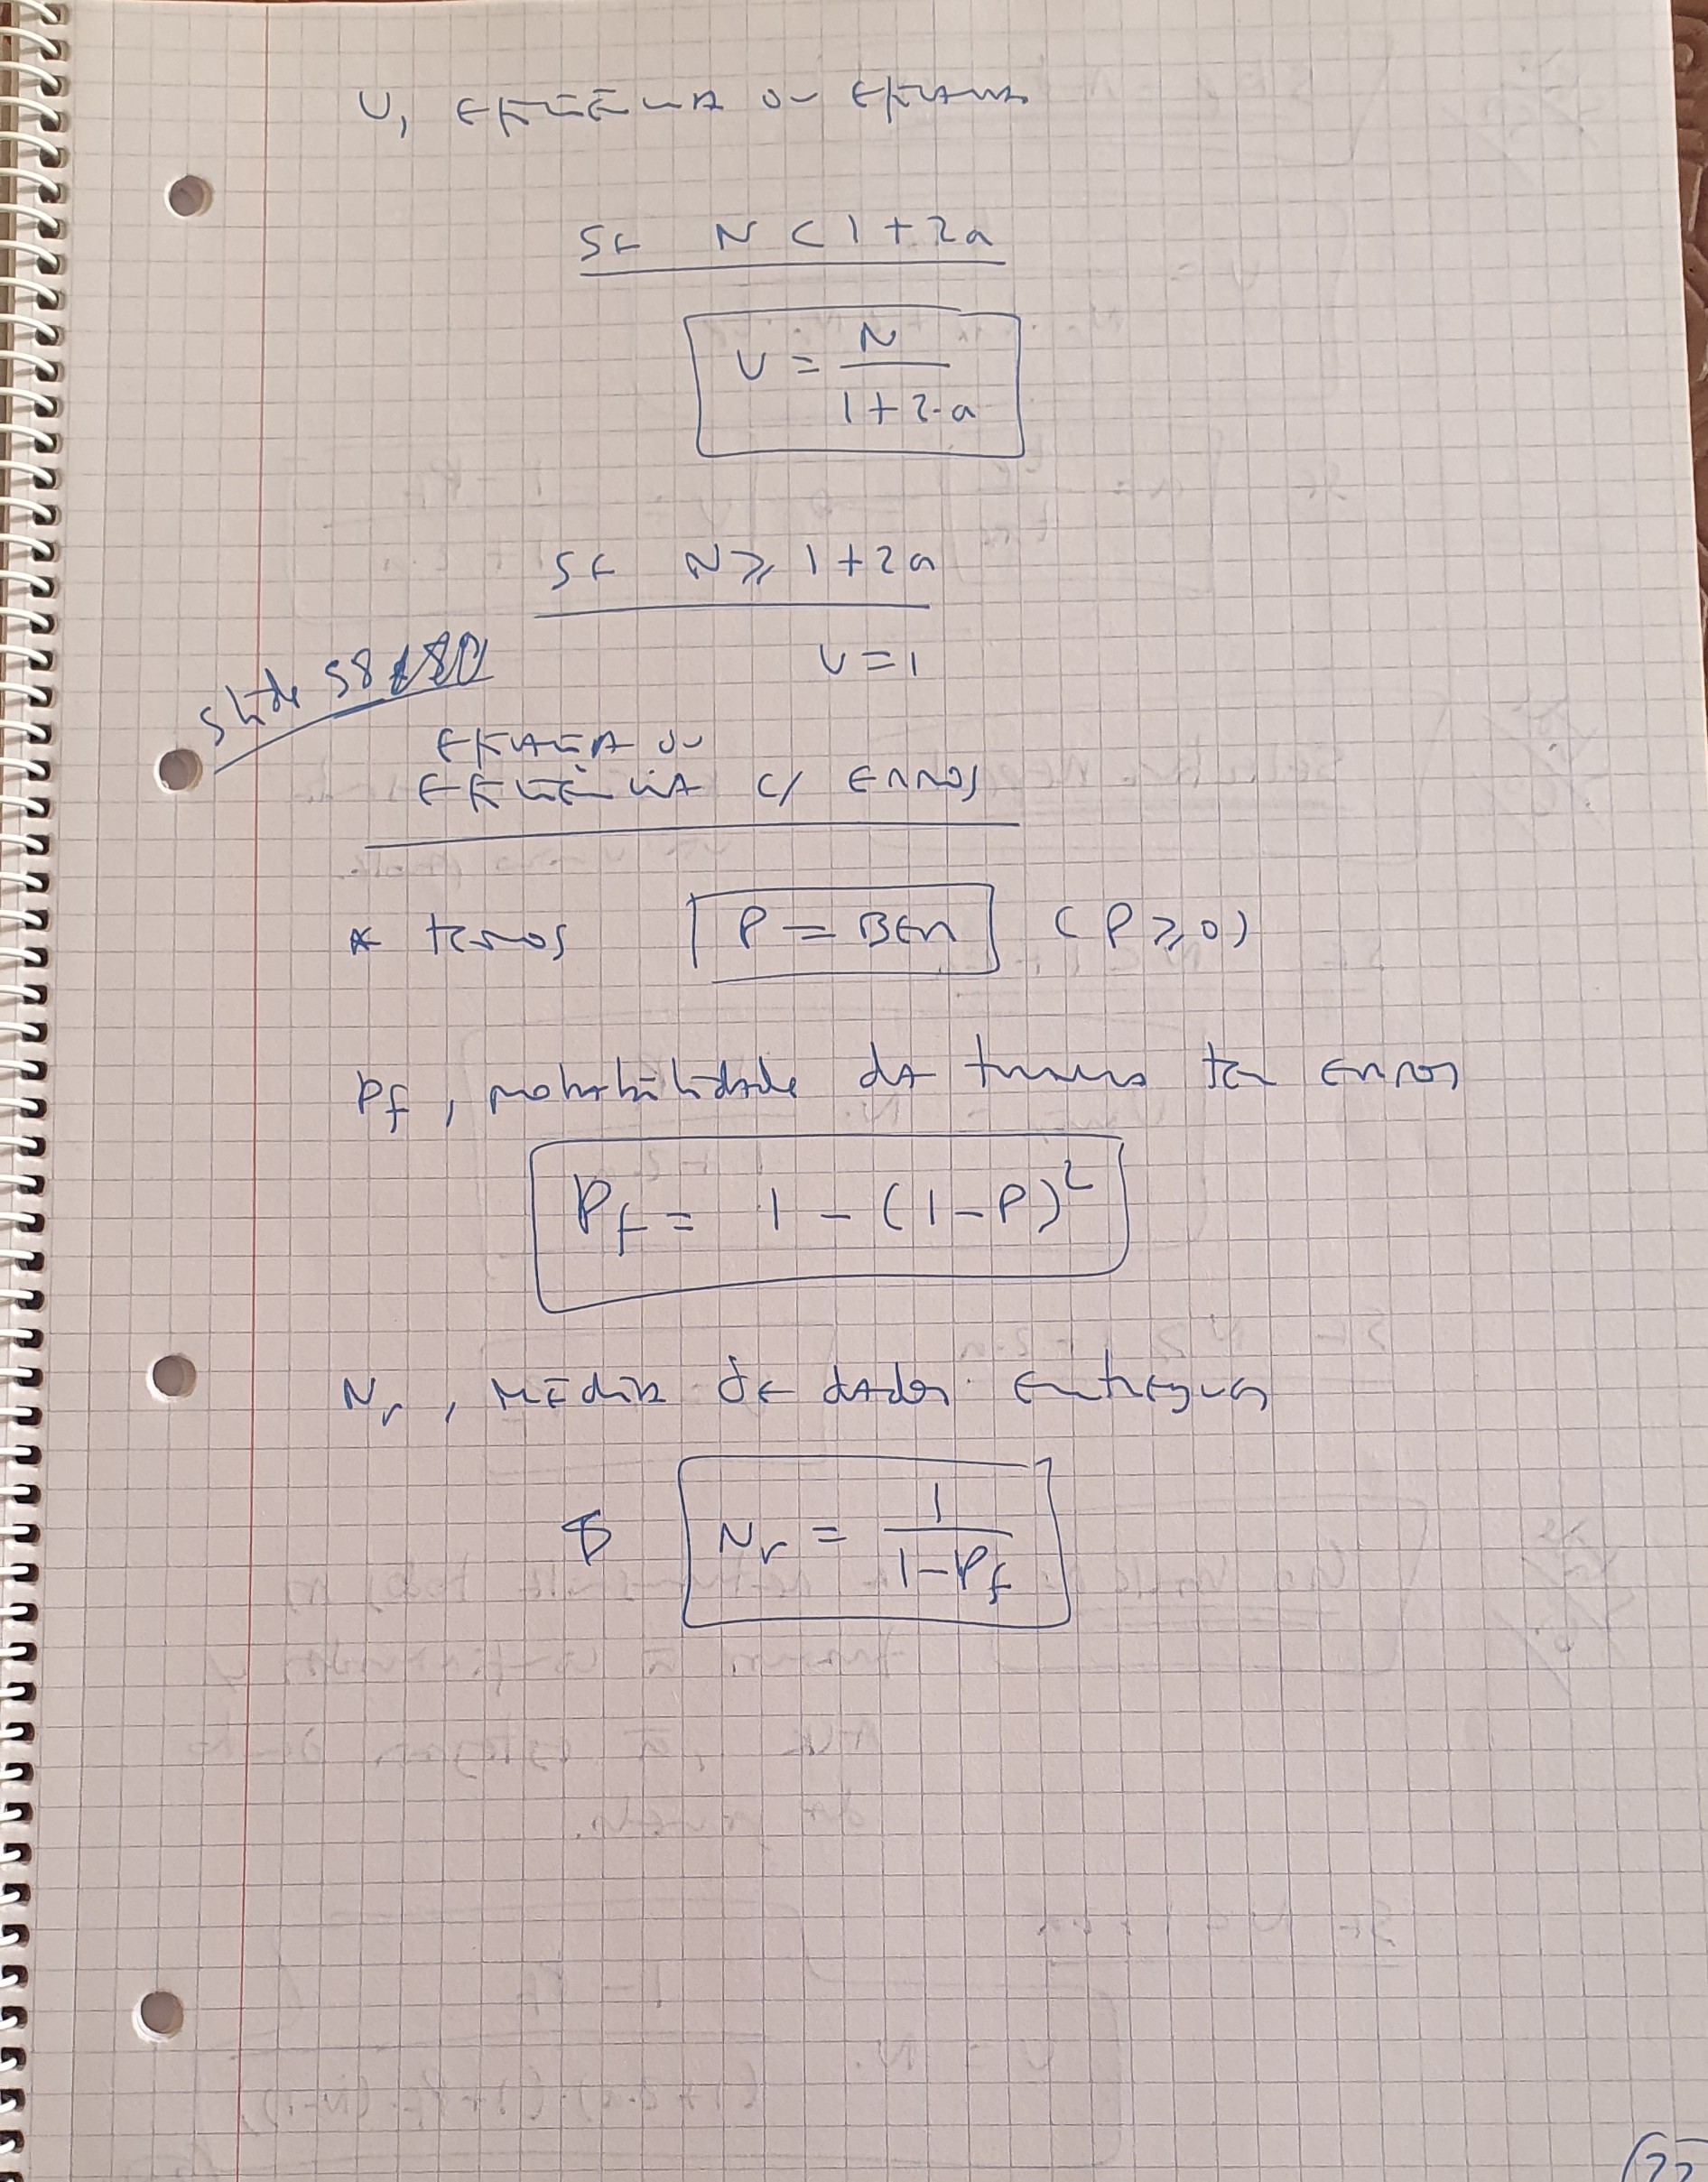 U, EFICIÊNCIA OU EFICÁCIA
SE N < 1 + 2a
U = N / (1 + 2·a)
SE N ≥ 1 + 2a
U = 1
Slide 58
EFICÁCIA OU
EFICIÊNCIA C/ ERROS
* temos P = BER (P ≥ 0)
Pf, probabilidade da trama ter erros
Pf = 1 - (1-P)^L
Nr, MÉDIA DE dados entregues
Nr = 1 / (1-Pf)